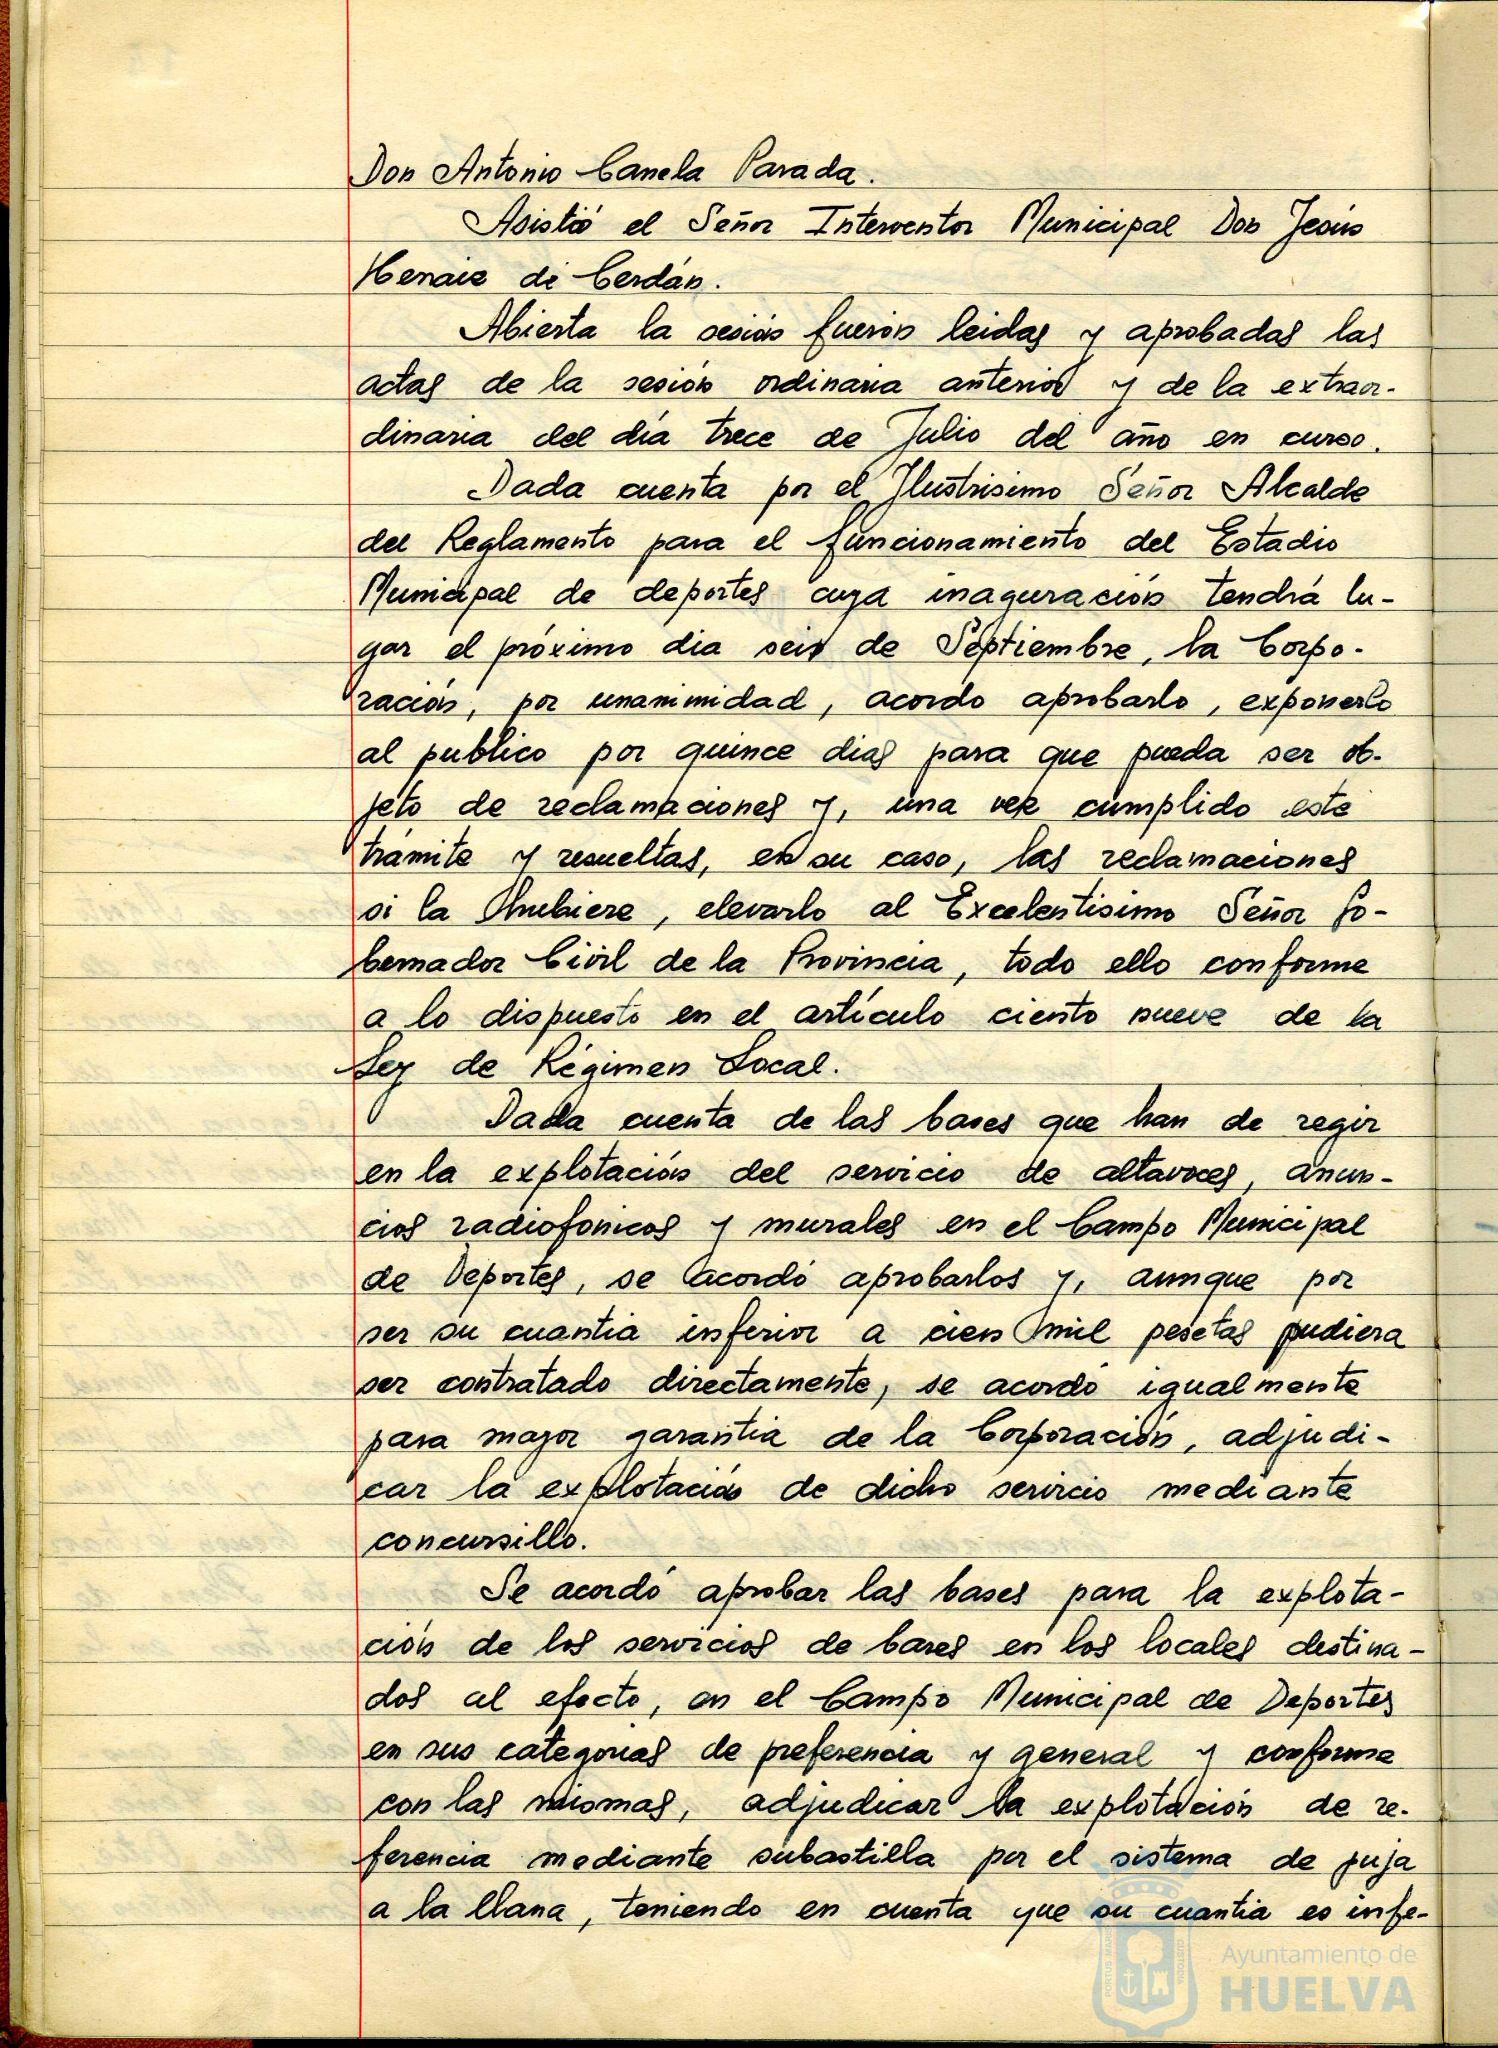 Don Antonio Canela Parada.
Asistió el Señor Interventor Municipal Don Jesús
Henaiz di Cerdán.
Abierta la sesión fueron leidas y aprobadas las
actas de la sesión ordinaria anterior y de la extraor-
dinaria del día trece de Julio del año en curso.
Dada cuenta por el Ilustrisimo Señor Alcalde
del Reglamento para el funcionamiento del Estadio
Municipal de deportes cuya inaguración tendrá lu-
gar el próximo dia seis de Septiembre, la Corpo-
ración, por unanimidad, acordo aprobarlo, exponerlo
al publico por quince dias para que pueda ser ob-
jeto de reclamaciones y, una vez cumplido este
trámite y resueltas, en su caso, las reclamaciones
si la hubiere, elevarlo al Excelentisimo Señor Go-
bernador Civil de la Provincia, todo ello conforme
a lo dispuesto en el artículo ciento nueve de la
Ley de Régimen Local.
Dada cuenta de las bases que han de regir
en la explotación del servicio de altavoces, anun-
cios radiofonicos y murales en el Campo Municipal
de Deportes, se acordó aprobarlos y, aunque por
ser su cuantia inferior a cien mil pesetas pudiera
ser contratado directamente, se acordó igualmente
para mayor garantia de la Corporación, adjudi-
car la explotación de dicho servicio mediante
concursillo.
Se acordó aprobar las bases para la explota-
ción de los servicios de bares en los locales destina-
dos al efecto, en el Campo Municipal de Deportes
en sus categorias de preferencia y general y conforme
con las mismas, adjudicar la explotación de re-
ferencia mediante subastilla por el sistema de puja
a la llana, teniendo en cuenta que su cuantia es infe-
Ayuntamiento de
HUELVA